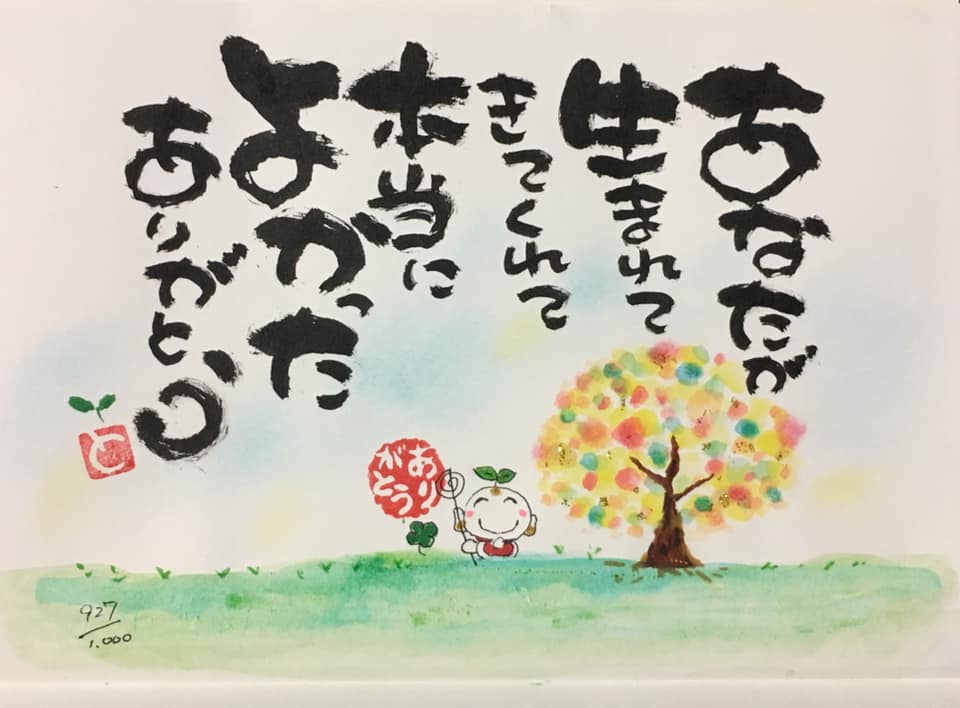 あなたが
生まれて
きてくれて
本当に
よかった
ありがとう
と
あり
がとう
927
1.000